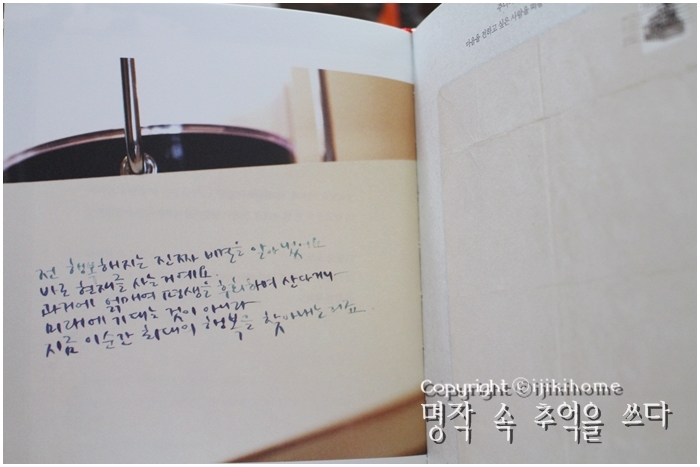 전 행복해지는 진짜 비결을 알아냈어요
바로 현재를 사는거예요.
과거에 얽매여 평생을 후회하며 산다거나
미래에 기대는 것이 아니라
지금 이순간 최대의 행복을 찾아내는거죠.
마음을 전하고 싶은 사람을 떠올
Copyright ⓒijikihome
명작 속 추억을 쓰다